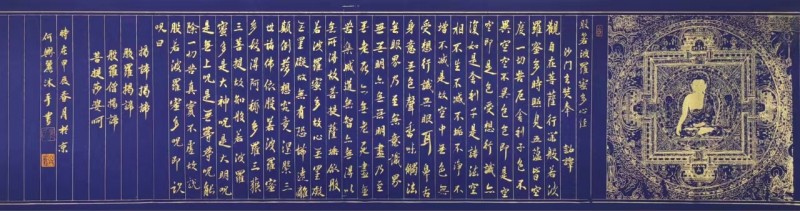 般若波羅蜜多心經
沙门玄奘奉 詔譯
觀自在菩薩行深般若波
羅蜜多時照見五蘊皆空
度一切苦厄舍利子色不
異空空不異色色即是空
空即是色受想行識亦
復如是舍利子是諸法空
相不生不滅不垢不淨不
增不減是故空中無色無
受想行識無眼耳鼻舌
身意無色聲香味觸法
無眼界乃至無意識界
無無明亦無無明盡乃至
無老死亦無老死盡無
苦集滅道無智亦無得以
無所得故菩提薩埵依般
若波羅蜜多故心無罣礙
無罣礙故無有恐怖遠離
顛倒夢想究竟涅槃三
世諸佛依般若波羅蜜
多故得阿耨多羅三藐
三菩提故知般若波羅
蜜多是大神咒是大明咒
是無上咒是無等等咒能
除一切苦真實不虛故說
般若波羅蜜多咒即說
咒曰
揭諦揭諦
般羅揭諦
般羅僧揭諦
菩提莎婆呵
時在甲辰春月於京
何興麗沐手書